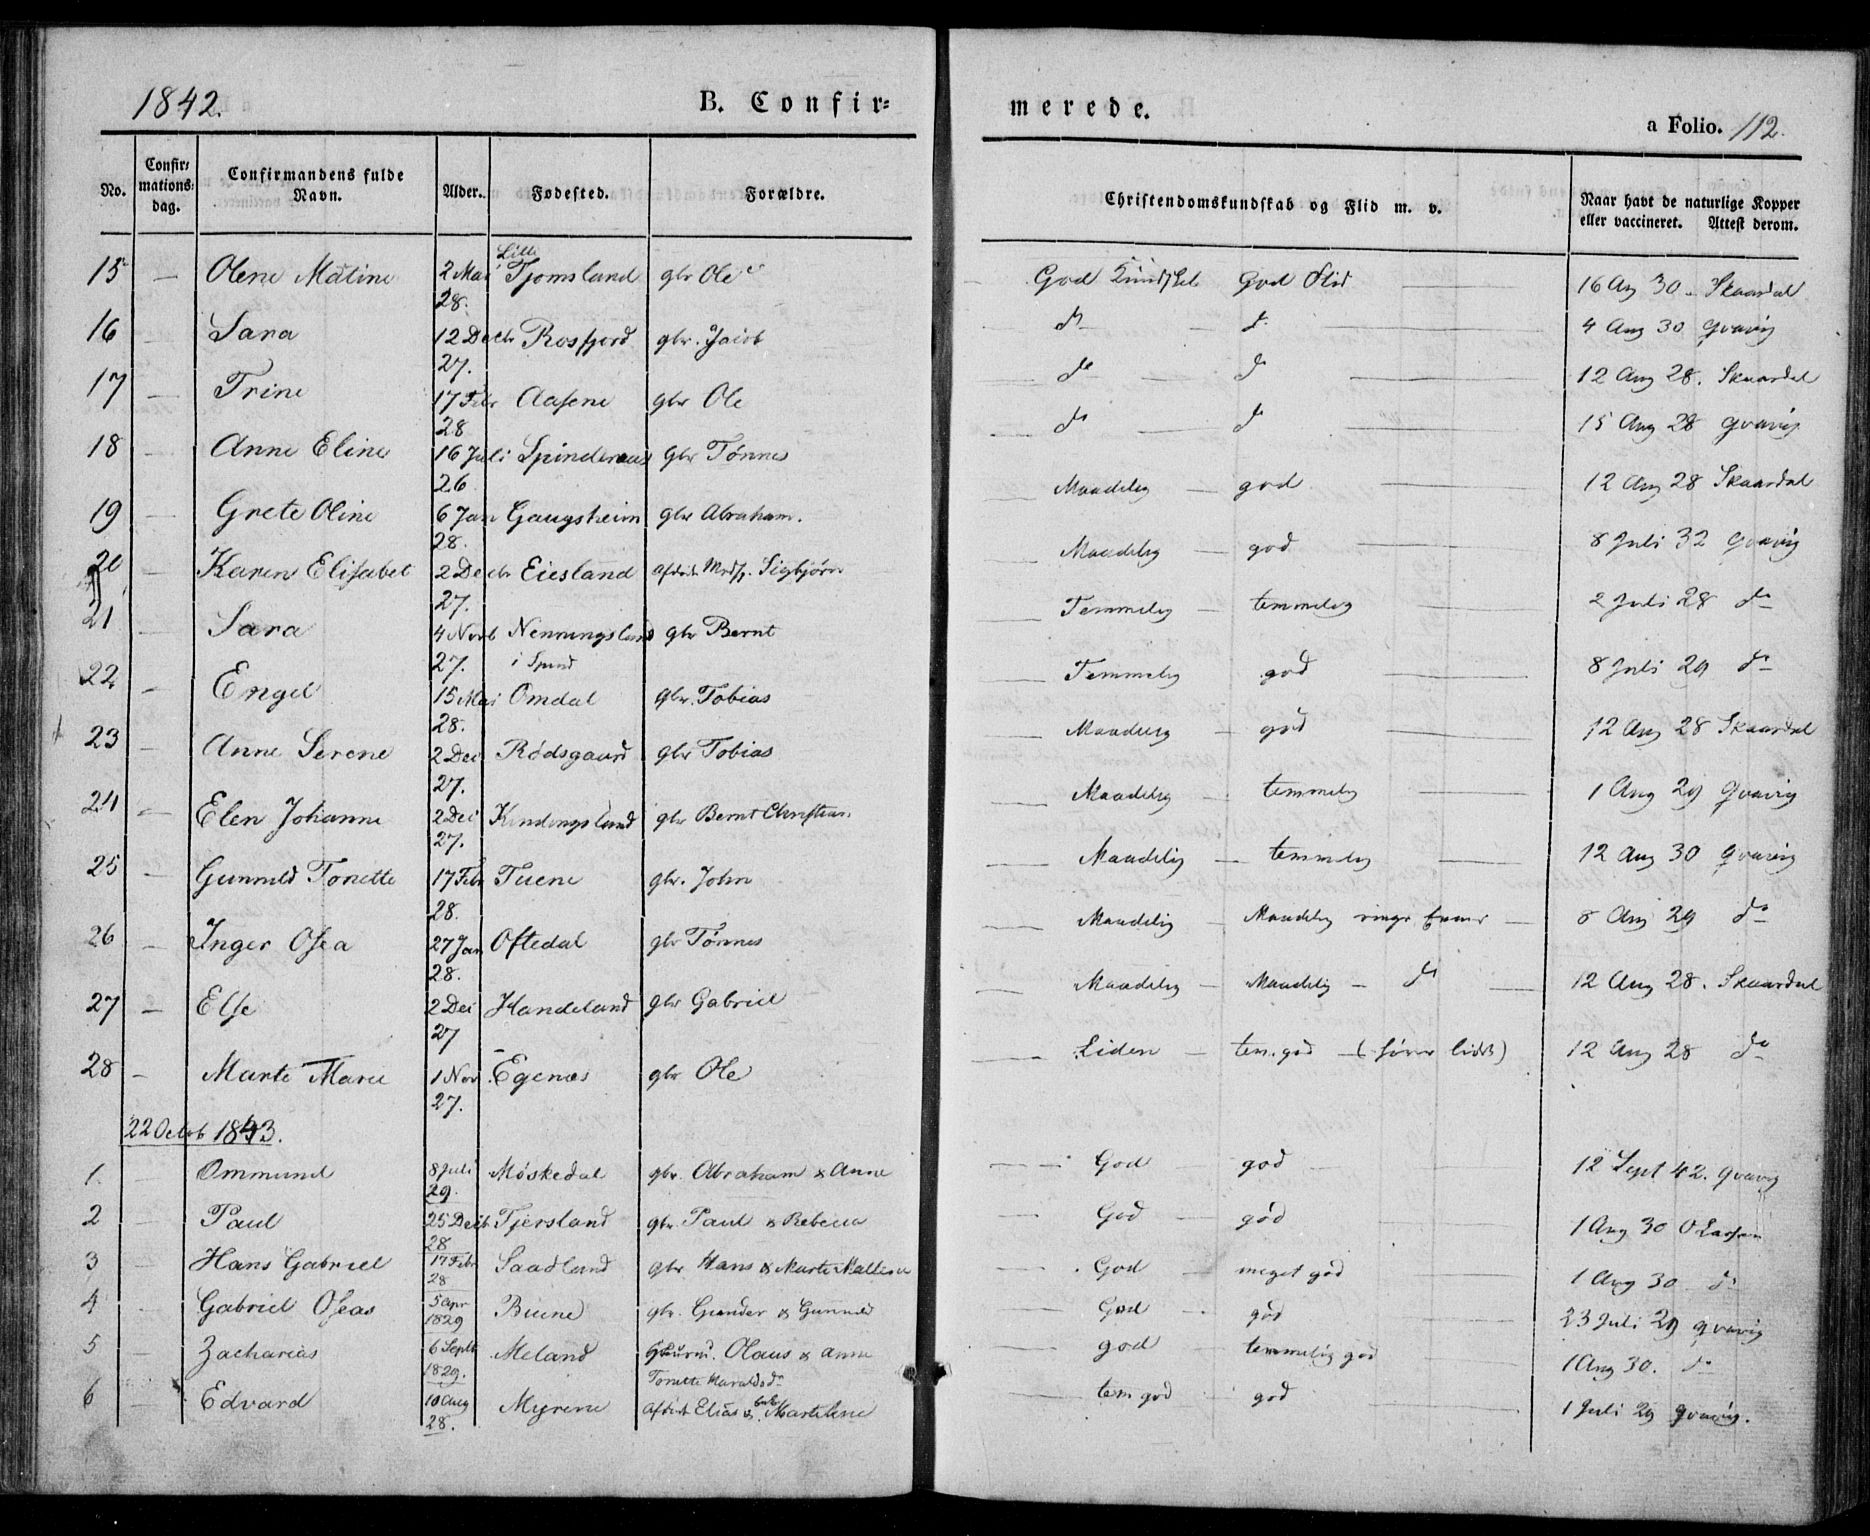 1842.
B. Confir=
merede.
a Folio. 112.
No.
Confir=
mations=
dag.
Confirmandens fulde
Navn.
Alder.
Fødested.
Forældre.
Christendomskundskab og Flid m. v.
Naar havt de naturlige Kopper
eller vaccineret. Attest derom.
15 — Olene Matine 2 Mai 28. Lille Tjomsland gbr Ole — God Kundskb God Flid — 16 Aug 30 - Skaardal
16 — Sara 12 Decbr 27. Rosfjord gbr. Jacob — do — do — 4 Aug 30 Qvavig
17 — Trine 17 Febr 28 Aasene gbr Ole — do — do — 12 Aug 28. Skaardal
18 — Anne Eline 16 Juli 26 gbr Tønnes — do do — 15 Aug 28 Qvavig
19 — Grete Oline 6 Jan 28. Gaugsheim gbr Abraham. — Maadelig — god — 12 Aug 28 Skaardal
20 — Karen Elisabet 2 Decbr 27. Eiesland Sigbjørn — Maadelig — god — 8 Juli 32 Qvavig
21 — Sara 4 Novb 27. Nenningsland i Spind gbr Bernt — Temmelig — temmelig — 2 Juli 28 do
22 — Engel 15 Mai 28. Omdal gbr. Tobias — Temmelig god — 8 Juli 29 do
23 — Anne Serene 2 Dec 27. Rødsgaard gbr Tobias — Maadelig — god — 12 Aug 28 Skaardal
24 — Elen Johanne 2 Dec 27. Kendingsland gbr Bernt Christian — Maadelig — temmelig — 1 Aug 29 Qvavig
25 — Gunnild Tonette 17 Febr 28. Tuene gbr. John Maadelig — temmelig — 12 Aug 30 Qvavig
26 — Inger Osea 27 Jan 28. Oftedal gbr Tønnes — Maadelig — Maadelig — 8 Aug 29 do
27 — Else 2 Dec 27 Handeland gbr Gabriel — Maadelig — Maadelig — do — 12 Aug 28. Skaardal
28 — Marte Marie 1 Nov 27. Egenæs gbr Ole — Liden — tem. god — 12 Aug 28 do
22 Octob 1843.
1. Ommund 8 Juli 29. Møskedal gbr. Abraham & Anne — God god 12 Sept 42. Qvavig
2 — Paul 25 Decb 28 Tjersland gbr. Paul & Rebecca — God — god 1 Aug 30 O Larsen
3 — Hans Gabriel 17 Febr 28 Saadland gbr. Hans & Marte — God — meget god 1 Aug 30 do
4 — Gabriel Oseas 5 Apr 1829 Buene gbr. Gunder & Gunnild — God — god 23 Juli 29 Qvavig
5 — Zacharias 6 Septb 1829. Meland Olaus & Anne Tonette Haraldsdr god — temmelig god 1 Aug 30. do
6 — Edvard 10 Aug 28. Myrene Elias & — tem god — god — 1 Juli 29 Qvavig.